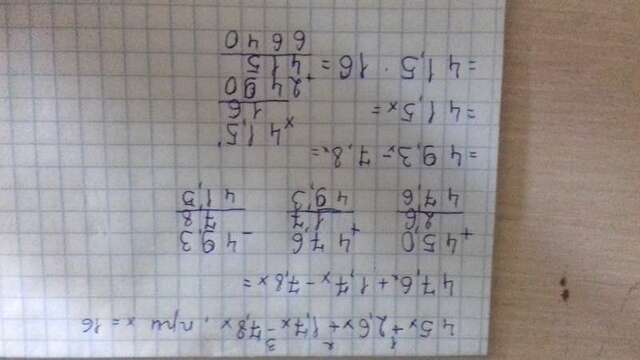 45x + 2,6x + 1,7x - 7,8x, при x = 16
1 2 3
47,6x + 1,7x - 7,8x =
+ 45,0
2,6
47,6
+ 47,6
1,7
49,3
- 49,3
7,8
41,5
= 49,3x - 7,8x =
= 41,5x =
= 41,5 · 16 =
x 41,5
16
+ 2490
415
6640